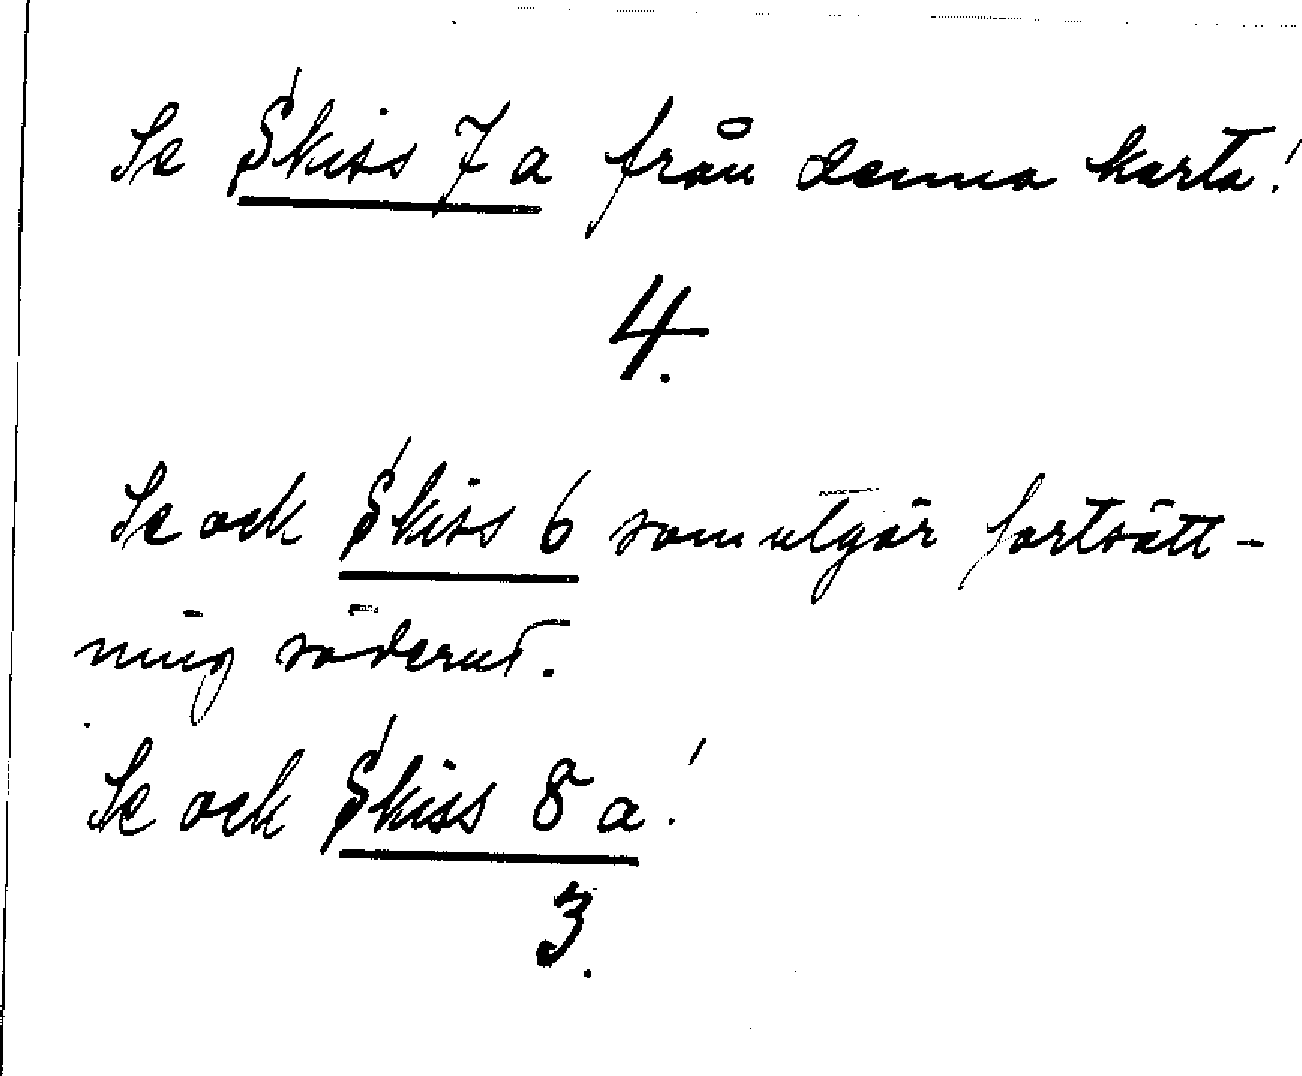 Se Skiss 7a från denna karta!
4.
Se ock Skiss 6 som utgör fortsätt-
ning söderut.
Se ock Skiss 8a!
3.